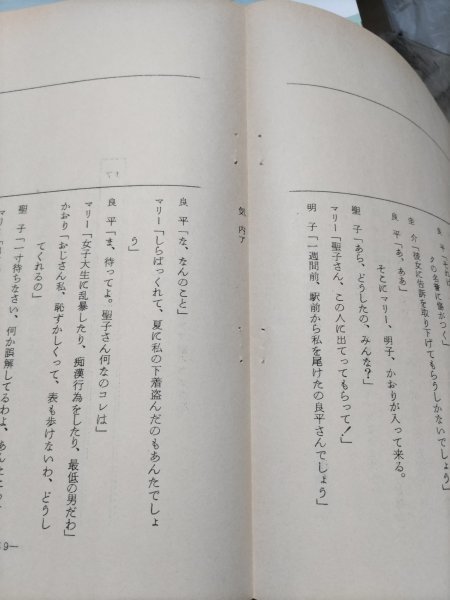 クの名誉に傷がつく」
圭介「彼女に告訴を取り下げてもらうしかないでしょう」
良平「あ、ああ」
そこにマリー、明子、かおりが入って来る。
聖子「あら、どうしたの、みんな？」
マリー「聖子さん、この人に出てってもらって！」
明子「一週間前、駅前から私を尾けたの良平さんでしょう」
良平「な、なんのこと」
マリー「しらばっくれて、夏に私の下着盗んだのもあんたでしょ
う」
良平「ま、待ってよ。聖子さん何なのコレは」
マリー「女子大生に乱暴したり、痴漢行為をしたり、最低の男だわ」
かおり「おじさん私、恥ずかしくって、表も歩けないわ、どうし
てくれるの」
聖子「一寸待ちなさい、何か誤解してるわよ、あんたたち
マリー
9—